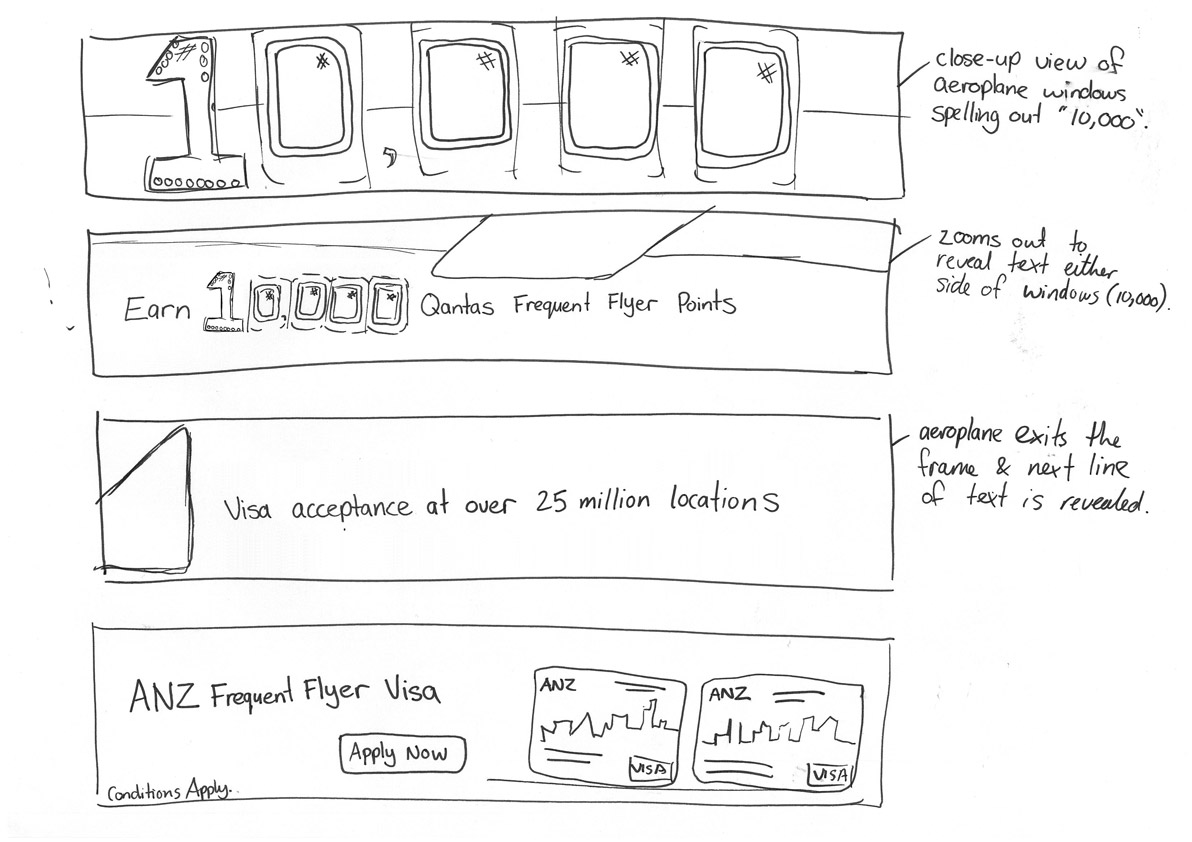 10,000
close-up view of
aeroplane windows
spelling out "10,000".
Earn 10,000 Qantas Frequent Flyer Points
zooms out to
reveal text either
side of windows (10,000).
Visa acceptance at over 25 million locations
aeroplane exits the
frame & next line
of text is revealed.
ANZ Frequent Flyer Visa
Apply Now
Conditions Apply.
ANZ
VISA
ANZ
VISA